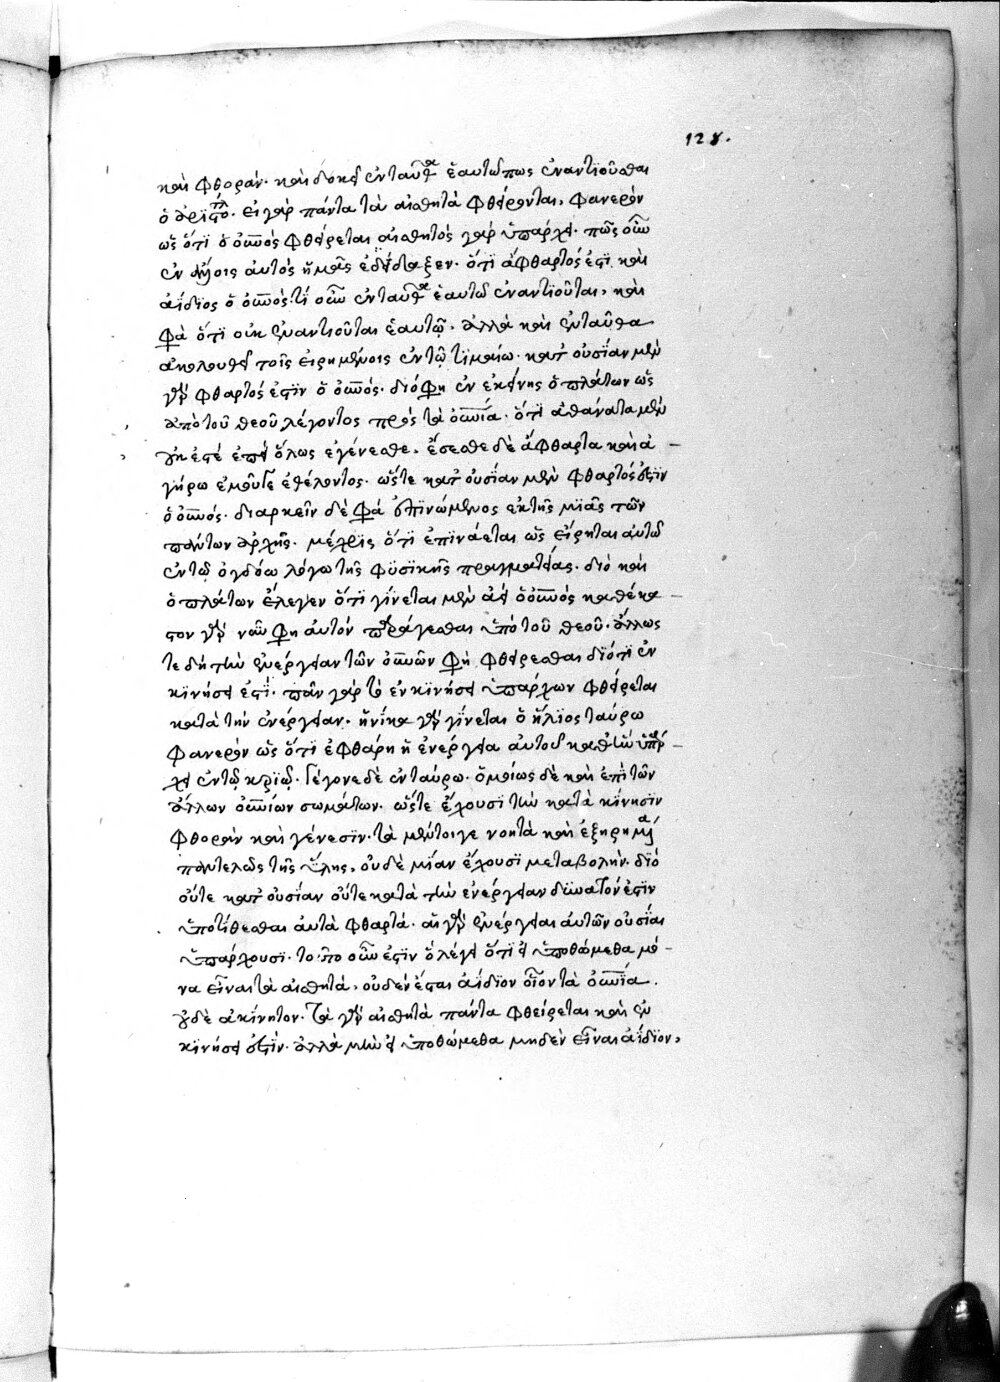 128.
καὶ φθοράν· καὶ δοκεῖ ἐνταῦθα ἑαυτῶ πως ἐναντιοῦσθαι
ὁ ἀριστοτλ· εἰ γὰρ πάντα τὰ αἰσθητὰ φθείρονται, φανερὸν
ὡς ὅτι ὁ οὐνὸς φθείρεται αἰσθητὸς γὰρ ὑπάρχει· πῶς οὖν
ἐν αὐτὸς ἡμᾶς ἐδίδαξεν· ὅτι ἄφθαρτός ἐστι καὶ
ἀΐδιος ὁ οὐνός· τί οὖν ἐνταῦθα ἑαυτῶ ἐναντιοῦται, καὶ
φα ὅτι οὐκ ἐναντιοῦται ἑαυτῷ· ἀλλὰ καὶ ἐνταῦθα
ἀκολουθεῖ τοῖς εἰρημένοις ἐν τῷ τιμαίω· κατ' οὐσίαν μὲν
γὰρ φθαρτός ἐστιν ὁ οὐνός· διό φη ἐν ἐκείνης ὁ πλάτων ὡς
ἀπὸ τοῦ θεοῦ λέγοντος πρὸς τὰ οὐνία· ὅτι ἀθάνατα μὲν
οὐκ ἐστέ ἐπεὶ ὅλως ἐγένεσθε, ἔσεσθε δὲ ἄφθαρτα καὶ ἀ
γήρω ἐμοῦ γε ἐθέλοντος· ὥστε κατ' οὐσίαν μὲν φθαρτός ἐστιν
ὁ οὐνός· διαρκεῖν δὲ φα ἐπινώμενος ἐκ τῆς μιᾶς τῶν
πάντων ἀρχῆς· μέχρις ὅτι ἐπινάεται ὡς εἴρηται αὐτῶ
ἐν τῷ ὀγδόω λόγω τῆς φυσικῆς πραγματείας· διὸ καὶ
ὁ πλάτων ἔλεγεν ὅτι γίνεται μὲν ἀεὶ ὁ οὐνὸς καθ' ἕκα
στον γὰρ νῦν φη αὐτὸν παράγεσθαι ὑπὸ τοῦ θεοῦ· ἄλλως
τε δὴ τὴν ἐνέργειαν τῶν οὐνῶν φη φθείρεσθαι διότι ἐν
κινήσει ἐστί· πᾶν γὰρ τὸ ἐν κινήσει ὑπάρχων φθείρεται
κατὰ τὴν ἐνέργειαν· ἡνίκα γὰρ γίνεται ὁ ἥλιος ταύρω
φανερὸν ὡς ὅτι ἐφθάρη ἡ ἐνέργεια αὐτοῦ καθ' ἣν ὑπῆρ
χε ἐν τῷ κριῷ· γέγονε δὲ ἐν ταύρω· ὁμοίως δὲ καὶ ἐπὶ τῶν
ἄλλων οὐνίων σωμάτων· ὥστε ἔχουσι τὴν κατὰ κίνησιν
φθορὰν καὶ γένεσιν· τὰ μέντοιγε νοητὰ καὶ ἐξηρημένα
παντελῶς τῆς ὕλης, οὐδὲ μίαν ἔχουσι μεταβολήν· διὸ
οὔτε κατ' οὐσίαν οὔτε κατὰ τὴν ἐνέργειαν δυνατόν ἐστιν
ὑποτίθεσθαι αὐτὰ φθαρτά· αἱ γὰρ ἐνέργειαι αὐτῶν οὐσίαι
ὑπάρχουσι· τοῦτο οὖν ἐστιν ὃ λέγει ὅτι εἰ ὑποθώμεθα μό
να εἶναι τὰ αἰσθητά, οὐδὲν ἔσται ἀΐδιον οἷον τὰ οὐνία·
οὐδὲ ἀκίνητον· τὰ γὰρ αἰσθητὰ πάντα φθείρεται καὶ ἐν
κινήσει ἐστίν· ἀλλὰ μὴν εἰ ὑποθώμεθα μηδὲν εἶναι ἀΐδιον,